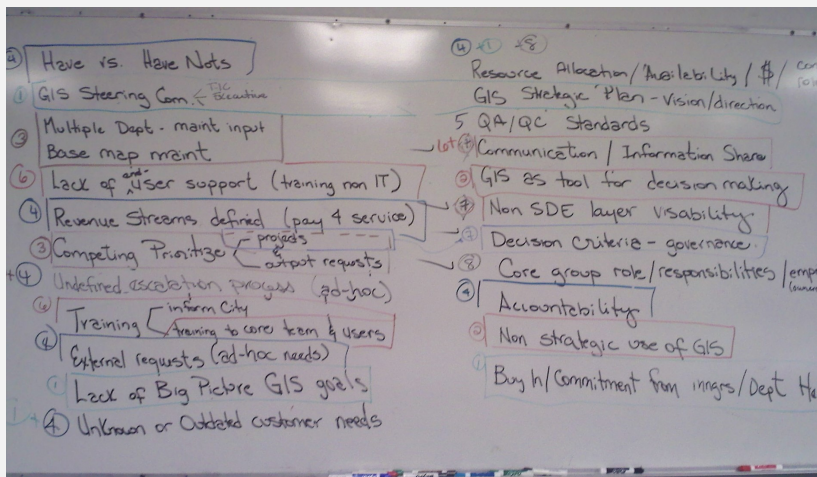 4 Have vs. Have Nots
1 GIS Steering Com. ← Executive
3 Multiple Dept. maint input
Base map maint
6 Lack of and user support (training non IT)
4 Revenue Streams defined (pay 4 service)
3 Competing Prioritize projects
& output requests
+4 Undefined escalation process (ad-hoc)
6 Training inform City
training to core team & users
4 External requsts (ad-hoc needs)
1 Lack of Big Picture GIS goals
1+4 UnKnown or Outdated customer needs
4 +1 +8
Resource Allocation/Availability/$/
GIS Strategic Plan - Vision/direction
5 QA/QC Standards
Communication / Information Share
2 GIS as tool for decision making
7 Non SDE layer visability
Decision criteria - governance.
8 Core group role/responsibilities/
4 Accountability
2 Non strategic use of GIS
1 Buy In/Commitment from mngrs/Dept